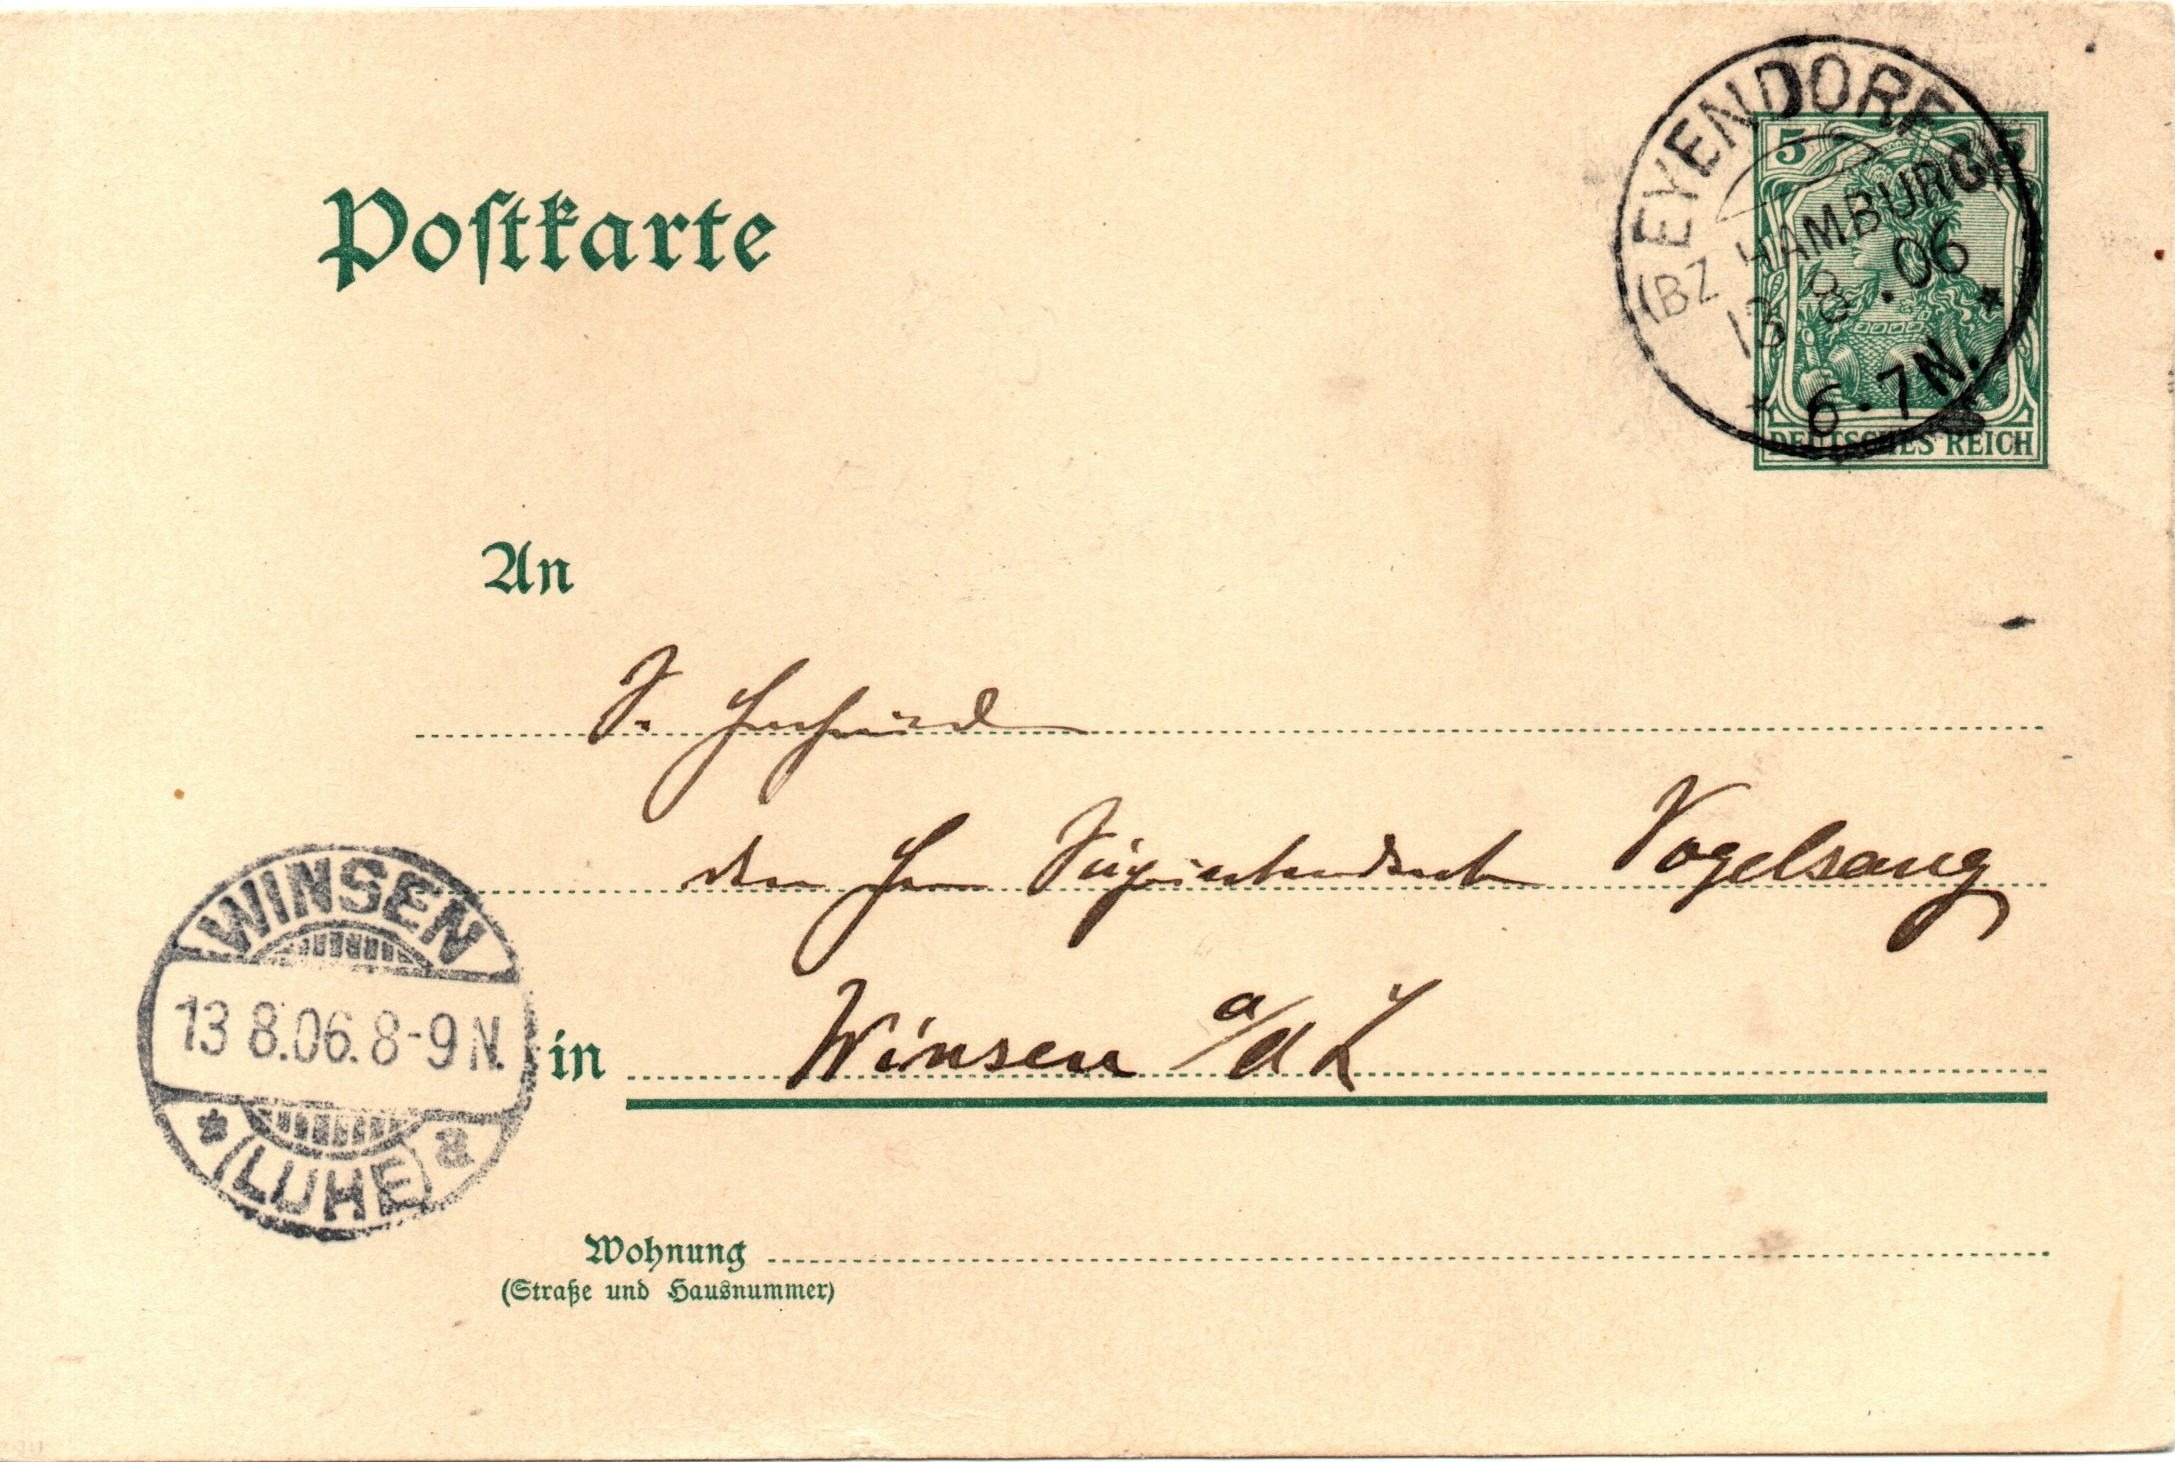 Postkarte
EYENDORF
(BZ HAMBURG)
13 8.06
6-7N.
5 5
DEUTSCHES REICH
An
S. Hochwürd
den Herrn Superintendent Vogelsang
WINSEN
13 8.06. 8-9 N.
(LUHE) a
in Winsen a/d L
Wohnung
(Straße und Hausnummer)